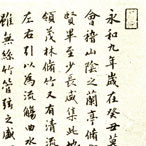 永和九年歲在癸丑暮
會稽山陰之蘭亭脩
賢畢至少長咸集此地
領茂林脩竹又有清流
左右引以為流觴曲水
雖無絲竹管弦之盛